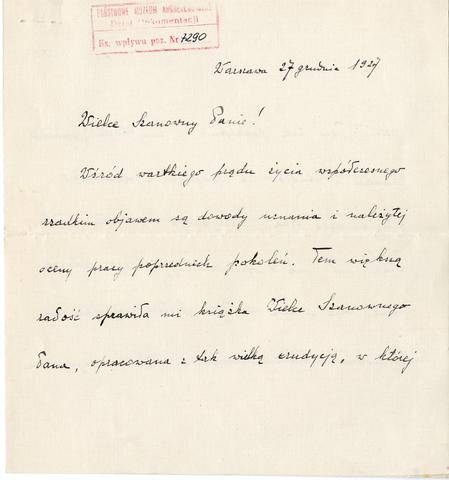 PAŃSTWOWE MUZEUM ARCHEOLOGICZNE
Dział Dokumentacji
Ks. wpływu poz. Nr 7290
Warszawa 27 grudnia 1927
Wielce Szanowny Panie!
Wśród wartkiego prądu życia współczesnego
rzadkim objawem są dowody uznania i należytej
oceny pracy poprzednich pokoleń. Tem większą
radość sprawiła mi książka Wielce Szanownego
Pana, opracowana z tak wielką erudycją, w której